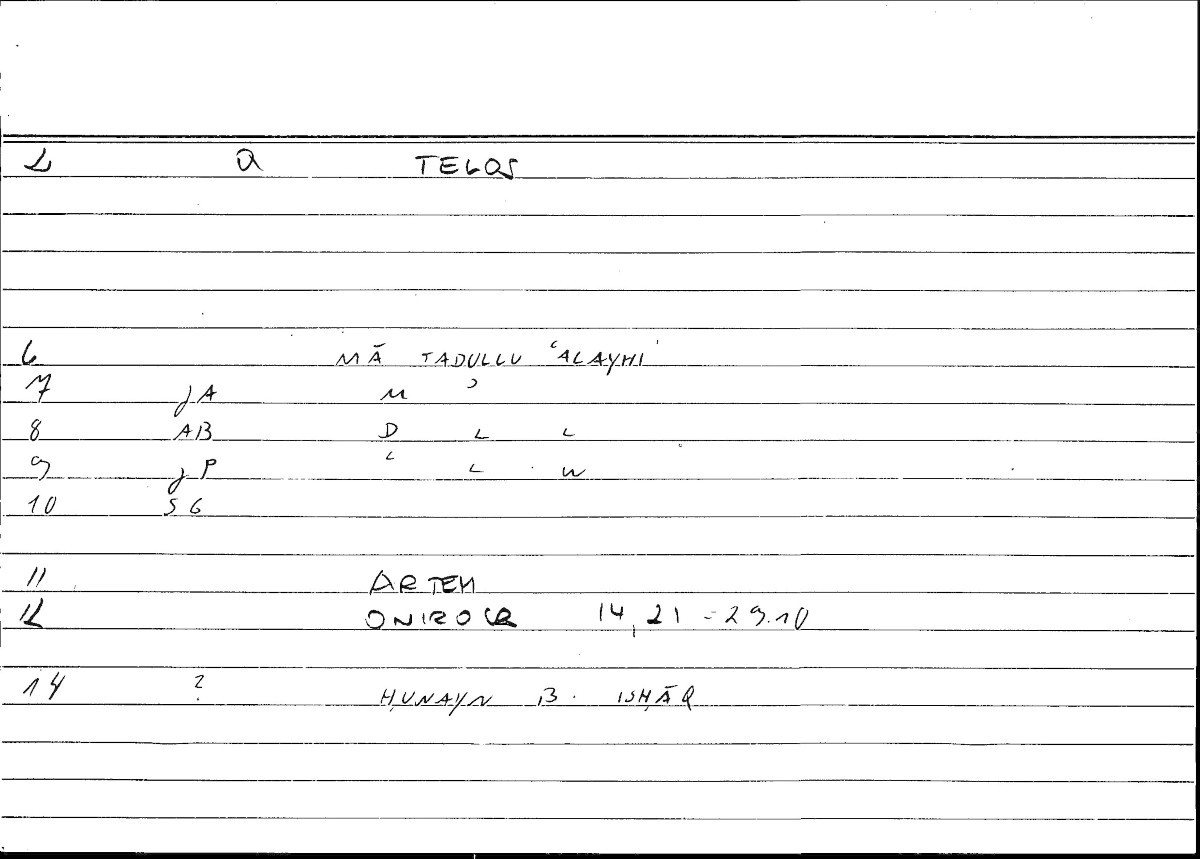 2 a TELOS
6 MĀ TADULLU ʿALAYHI
7 JA M ʾ
8 AB D L L
9 JP ʿ L W
10 SG
11 ARTEM
12 ONIROCR 14,21 - 29.10
14 ? ḤUNAYN B. ISḤĀQ